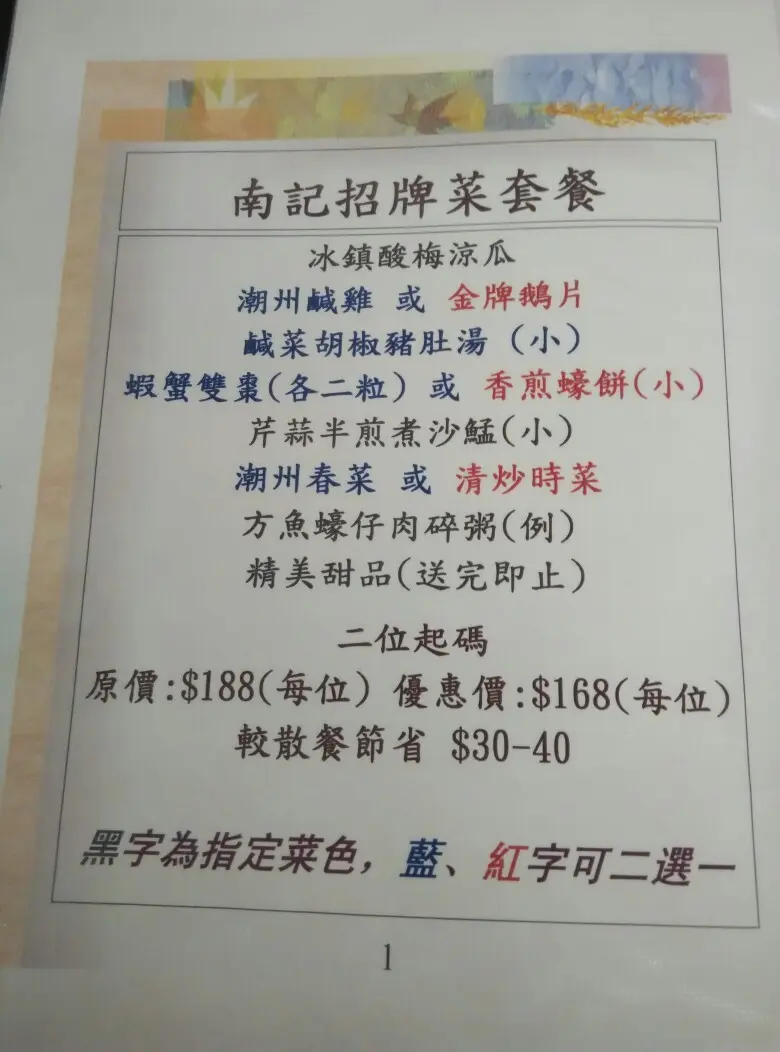 南記招牌菜套餐
冰鎮酸梅涼瓜
潮州鹹雞 或 金牌鵝片
鹹菜胡椒豬肚湯 (小)
蝦蟹雙棗(各二粒) 或 香煎蠔餅(小)
芹蒜半煎煮沙鯭(小)
潮州春菜 或 清炒時菜
方魚蠔仔肉碎粥(例)
精美甜品(送完即止)
二位起碼
原價:$188(每位) 優惠價:$168(每位)
較散餐節省 $30-40
黑字為指定菜色, 藍、紅字可二選一
1